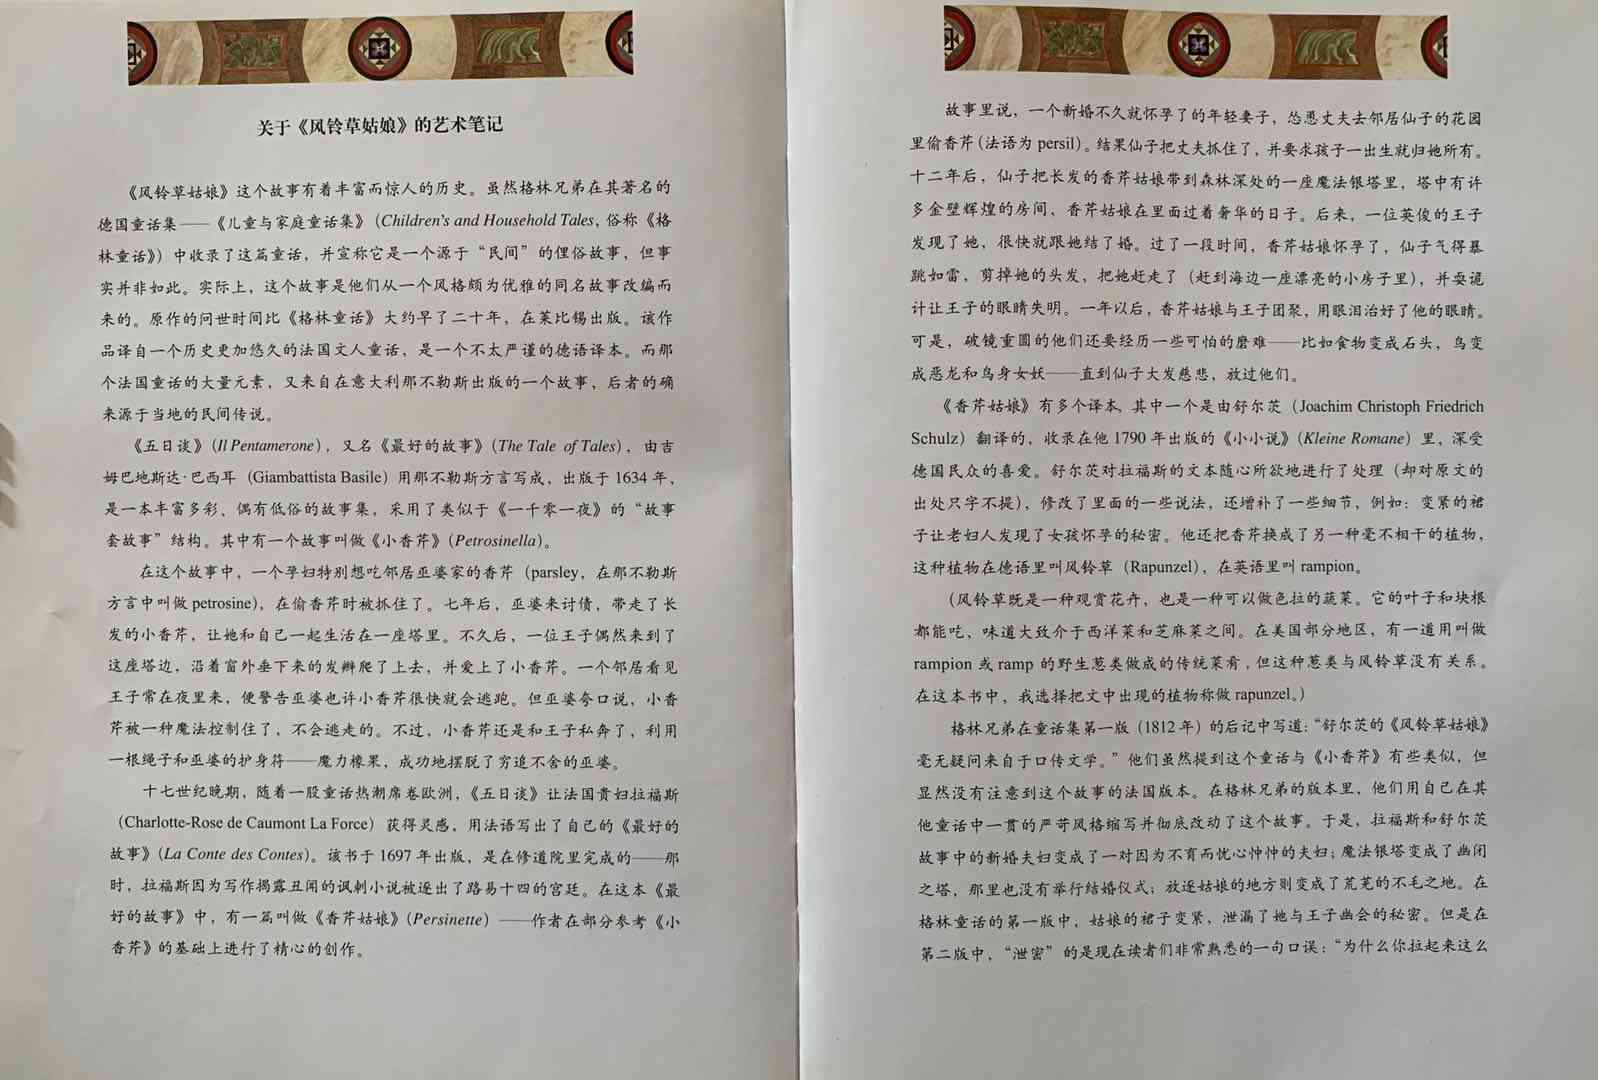 关于《风铃草姑娘》的艺术笔记
《风铃草姑娘》这个故事有着丰富而惊人的历史。虽然格林兄弟在其著名的
德国童话集——《儿童与家庭童话集》（Children's and Household Tales，俗称《格
林童话》）中收录了这篇童话，并宣称它是一个源于“民间”的俚俗故事，但事
实并非如此。实际上，这个故事是他们从一个风格颇为优雅的同名故事改编而
来的。原作的问世时间比《格林童话》大约早了二十年，在莱比锡出版。该作
品译自一个历史更加悠久的法国文人童话，是一个不太严谨的德语译本。而那
个法国童话的大量元素，又来自在意大利那不勒斯出版的一个故事，后者的确
来源于当地的民间传说。
《五日谈》（Il Pentamerone），又名《最好的故事》（The Tale of Tales），由吉
姆巴地斯达·巴西耳（Giambattista Basile）用那不勒斯方言写成，出版于 1634 年，
是一本丰富多彩、偶有低俗的故事集，采用了类似于《一千零一夜》的“故事
套故事”结构。其中有一个故事叫做《小香芹》（Petrosinella）。
在这个故事中，一个孕妇特别想吃邻居巫婆家的香芹（parsley，在那不勒斯
方言中叫做 petrosine），在偷香芹时被抓住了。七年后，巫婆来讨债，带走了长
发的小香芹，让她和自己一起生活在一座塔里。不久后，一位王子偶然来到了
这座塔边，沿着窗外垂下来的发辫爬了上去，并爱上了小香芹。一个邻居看见
王子常在夜里来，便警告巫婆也许小香芹很快就会逃跑。但巫婆夸口说，小香
芹被一种魔法控制住了，不会逃走的。不过，小香芹还是和王子私奔了，利用
一根绳子和巫婆的护身符——魔力橡果，成功地摆脱了穷追不舍的巫婆。
十七世纪晚期，随着一股童话热潮席卷欧洲，《五日谈》让法国贵妇拉福斯
（Charlotte-Rose de Caumont La Force）获得灵感，用法语写出了自己的《最好的
故事》（La Conte des Contes）。该书于 1697 年出版，是在修道院里完成的——那
时，拉福斯因为写作揭露丑闻的讽刺小说被逐出了路易十四的宫廷。在这本《最
好的故事》中，有一篇叫做《香芹姑娘》（Persinette）——作者在部分参考《小
香芹》的基础上进行了精心的创作。
故事里说，一个新婚不久就怀孕了的年轻妻子，怂恿丈夫去邻居仙子的花园
里偷香芹（法语为 persil）。结果仙子把丈夫抓住了，并要求孩子一出生就归她所有。
十二年后，仙子把长发的香芹姑娘带到森林深处的一座魔法银塔里，塔中有许
多金壁辉煌的房间，香芹姑娘在里面过着奢华的日子。后来，一位英俊的王子
发现了她，很快就跟她结了婚。过了一段时间，香芹姑娘怀孕了，仙子气得暴
跳如雷，剪掉她的头发，把她赶走了（赶到海边一座漂亮的小房子里），并耍诡
计让王子的眼睛失明。一年以后，香芹姑娘与王子团聚，用眼泪治好了他的眼睛。
可是，破镜重圆的他们还要经历一些可怕的磨难——比如食物变成石头，鸟变
成恶龙和鸟身女妖——直到仙子大发慈悲，放过他们。
《香芹姑娘》有多个译本，其中一个是由舒尔茨（Joachim Christoph Friedrich
Schulz）翻译的，收录在他 1790 年出版的《小小说》（Kleine Romane）里，深受
德国民众的喜爱。舒尔茨对拉福斯的文本随心所欲地进行了处理（却对原文的
出处只字不提），修改了里面的一些说法，还增补了一些细节，例如：变紧的裙
子让老妇人发现了女孩怀孕的秘密。他还把香芹换成了另一种毫不相干的植物，
这种植物在德语里叫风铃草（Rapunzel），在英语里叫 rampion。
（风铃草既是一种观赏花卉，也是一种可以做色拉的蔬菜。它的叶子和块根
都能吃，味道大致介于西洋菜和芝麻菜之间。在美国部分地区，有一道用叫做
rampion 或 ramp 的野生葱类做成的传统菜肴，但这种葱类与风铃草没有关系。
在这本书中，我选择把文中出现的植物称做 rapunzel。）
格林兄弟在童话集第一版（1812 年）的后记中写道：“舒尔茨的《风铃草姑娘》
毫无疑问来自于口传文学。”他们虽然提到这个童话与《小香芹》有些类似，但
显然没有注意到这个故事的法国版本。在格林兄弟的版本里，他们用自己在其
他童话中一贯的严苛风格缩写并彻底改动了这个故事。于是，拉福斯和舒尔茨
故事中的新婚夫妇变成了一对因为不育而忧心忡忡的夫妇；魔法银塔变成了幽闭
之塔，那里也没有举行结婚仪式；放逐姑娘的地方则变成了荒芜的不毛之地。在
格林童话的第一版中，姑娘的裙子变紧，泄漏了她与王子幽会的秘密。但是在
第二版中，“泄密”的是现在读者们非常熟悉的一句口误：“为什么你拉起来这么